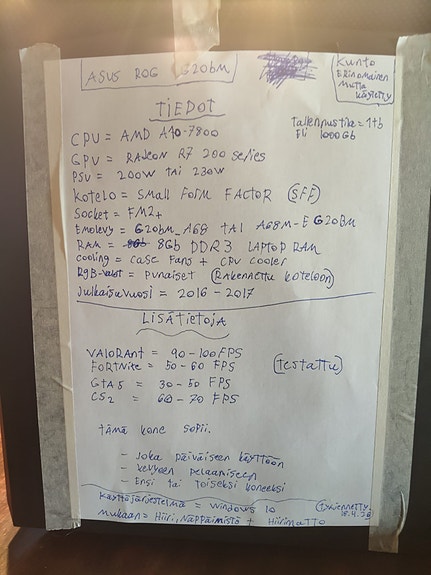 ASUS ROG G20BM
Kunto
Erinomainen
mutta
käytetty
TIEDOT
tallennustila = 1tb
Eli 1000Gb
CPU = AMD A10-7800
GPU = RADEON R7 200 series
PSU = 200W tai 230W
Kotelo = SMALL FORM FACTOR (SFF)
Socket = FM2+
Emolevy = G20BM_A68 TAI A68M-E G20BM
RAM = 8Gb DDR3 LAPTOP RAM
cooling = case Fans + CPU cooler
RGB-valot = punaiset (Rakennettu koteloon)
Julkaisuvuosi = 2016 - 2017
LISÄTIETOJA
VALORANT = 90 - 100 FPS
FORTNITE = 50 - 60 FPS
(testattu)
GTA 5 = 30 - 50 FPS
CS2 = 60 - 70 FPS
tämä kone sopii.
- Joka päiväiseen käyttöön
- kevyeen pelaamiseen
- Ensi tai toiseksi koneeksi
Käyttöjärjestelmä = Windows 10
mukaan = Hiiri, Näppäimistö + Hiirimatto